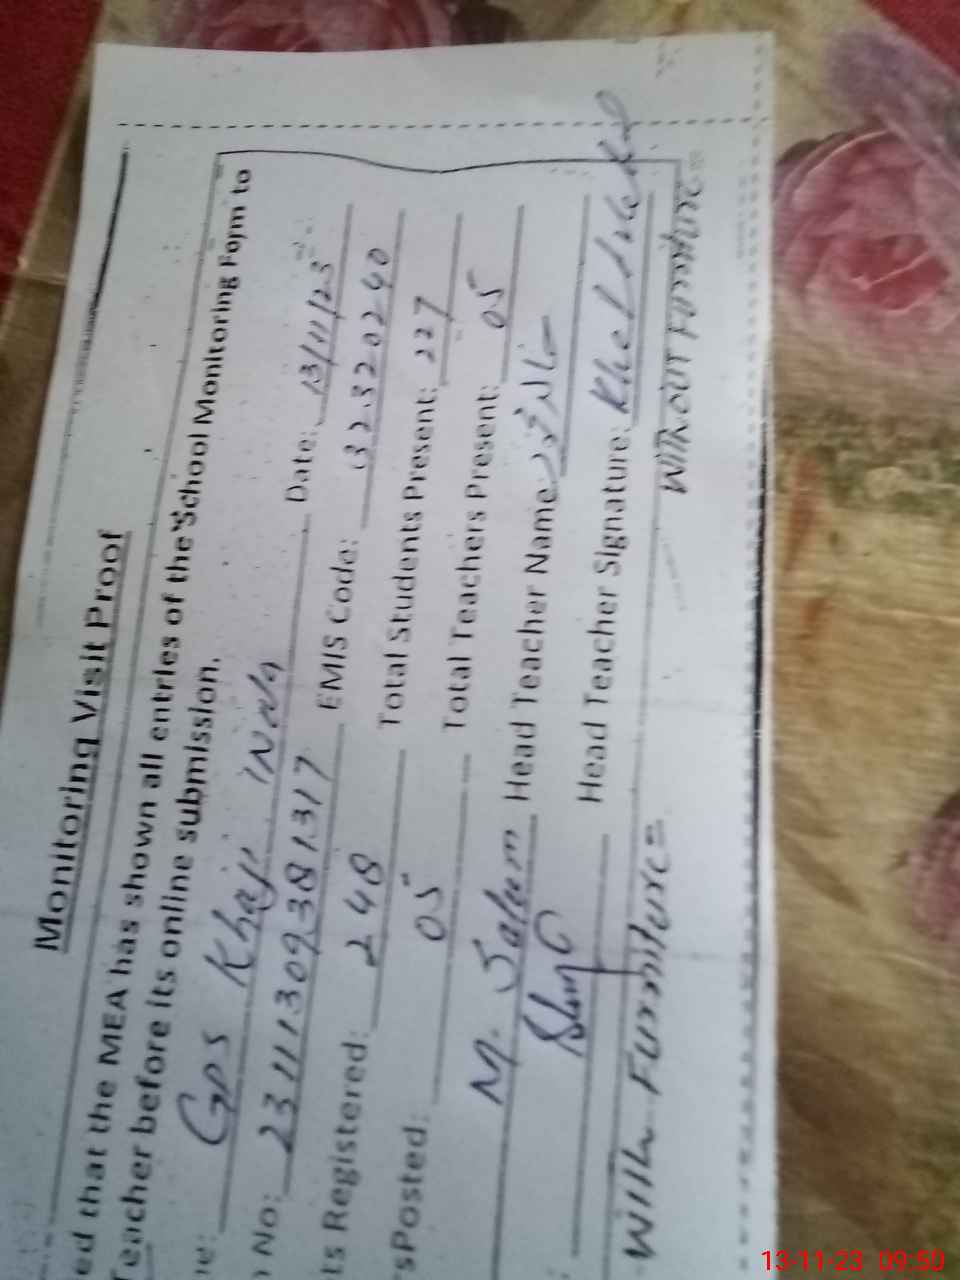 Monitoring Visit Proof
ed that the MEA has shown all entries of the School Monitoring Form to
Teacher before its online submission.
ne: GPS Khaji INda Date: 13/11/23
No: 2311130938 1317 EMIS Code: 32320240
ts Registered: 248 Total Students Present: 227
sPosted: 05 Total Teachers Present: 05
M. Salam Head Teacher Name:
Head Teacher Signature:
With Furniture= WithOUT Furniture=
13-11-23 09:50